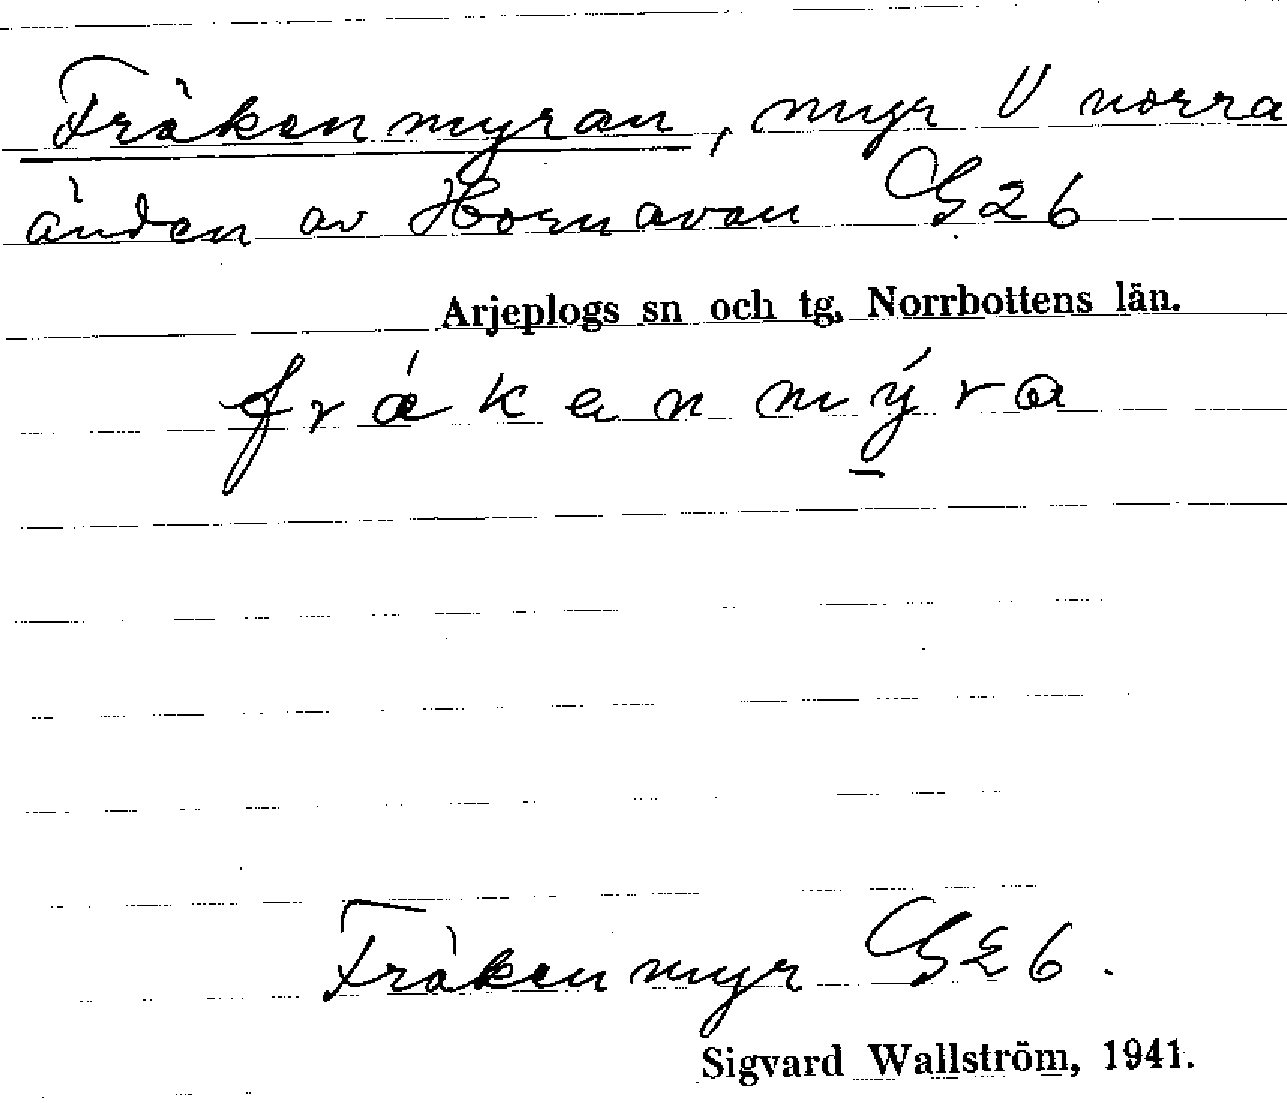 Fräkenmyran, myr V norra
änden av Hornavan G26
Arjeplogs sn och tg, Norrbottens län.
frǽkenmýra
Fräkenmyr G26.
Sigvard Wallström, 1941.